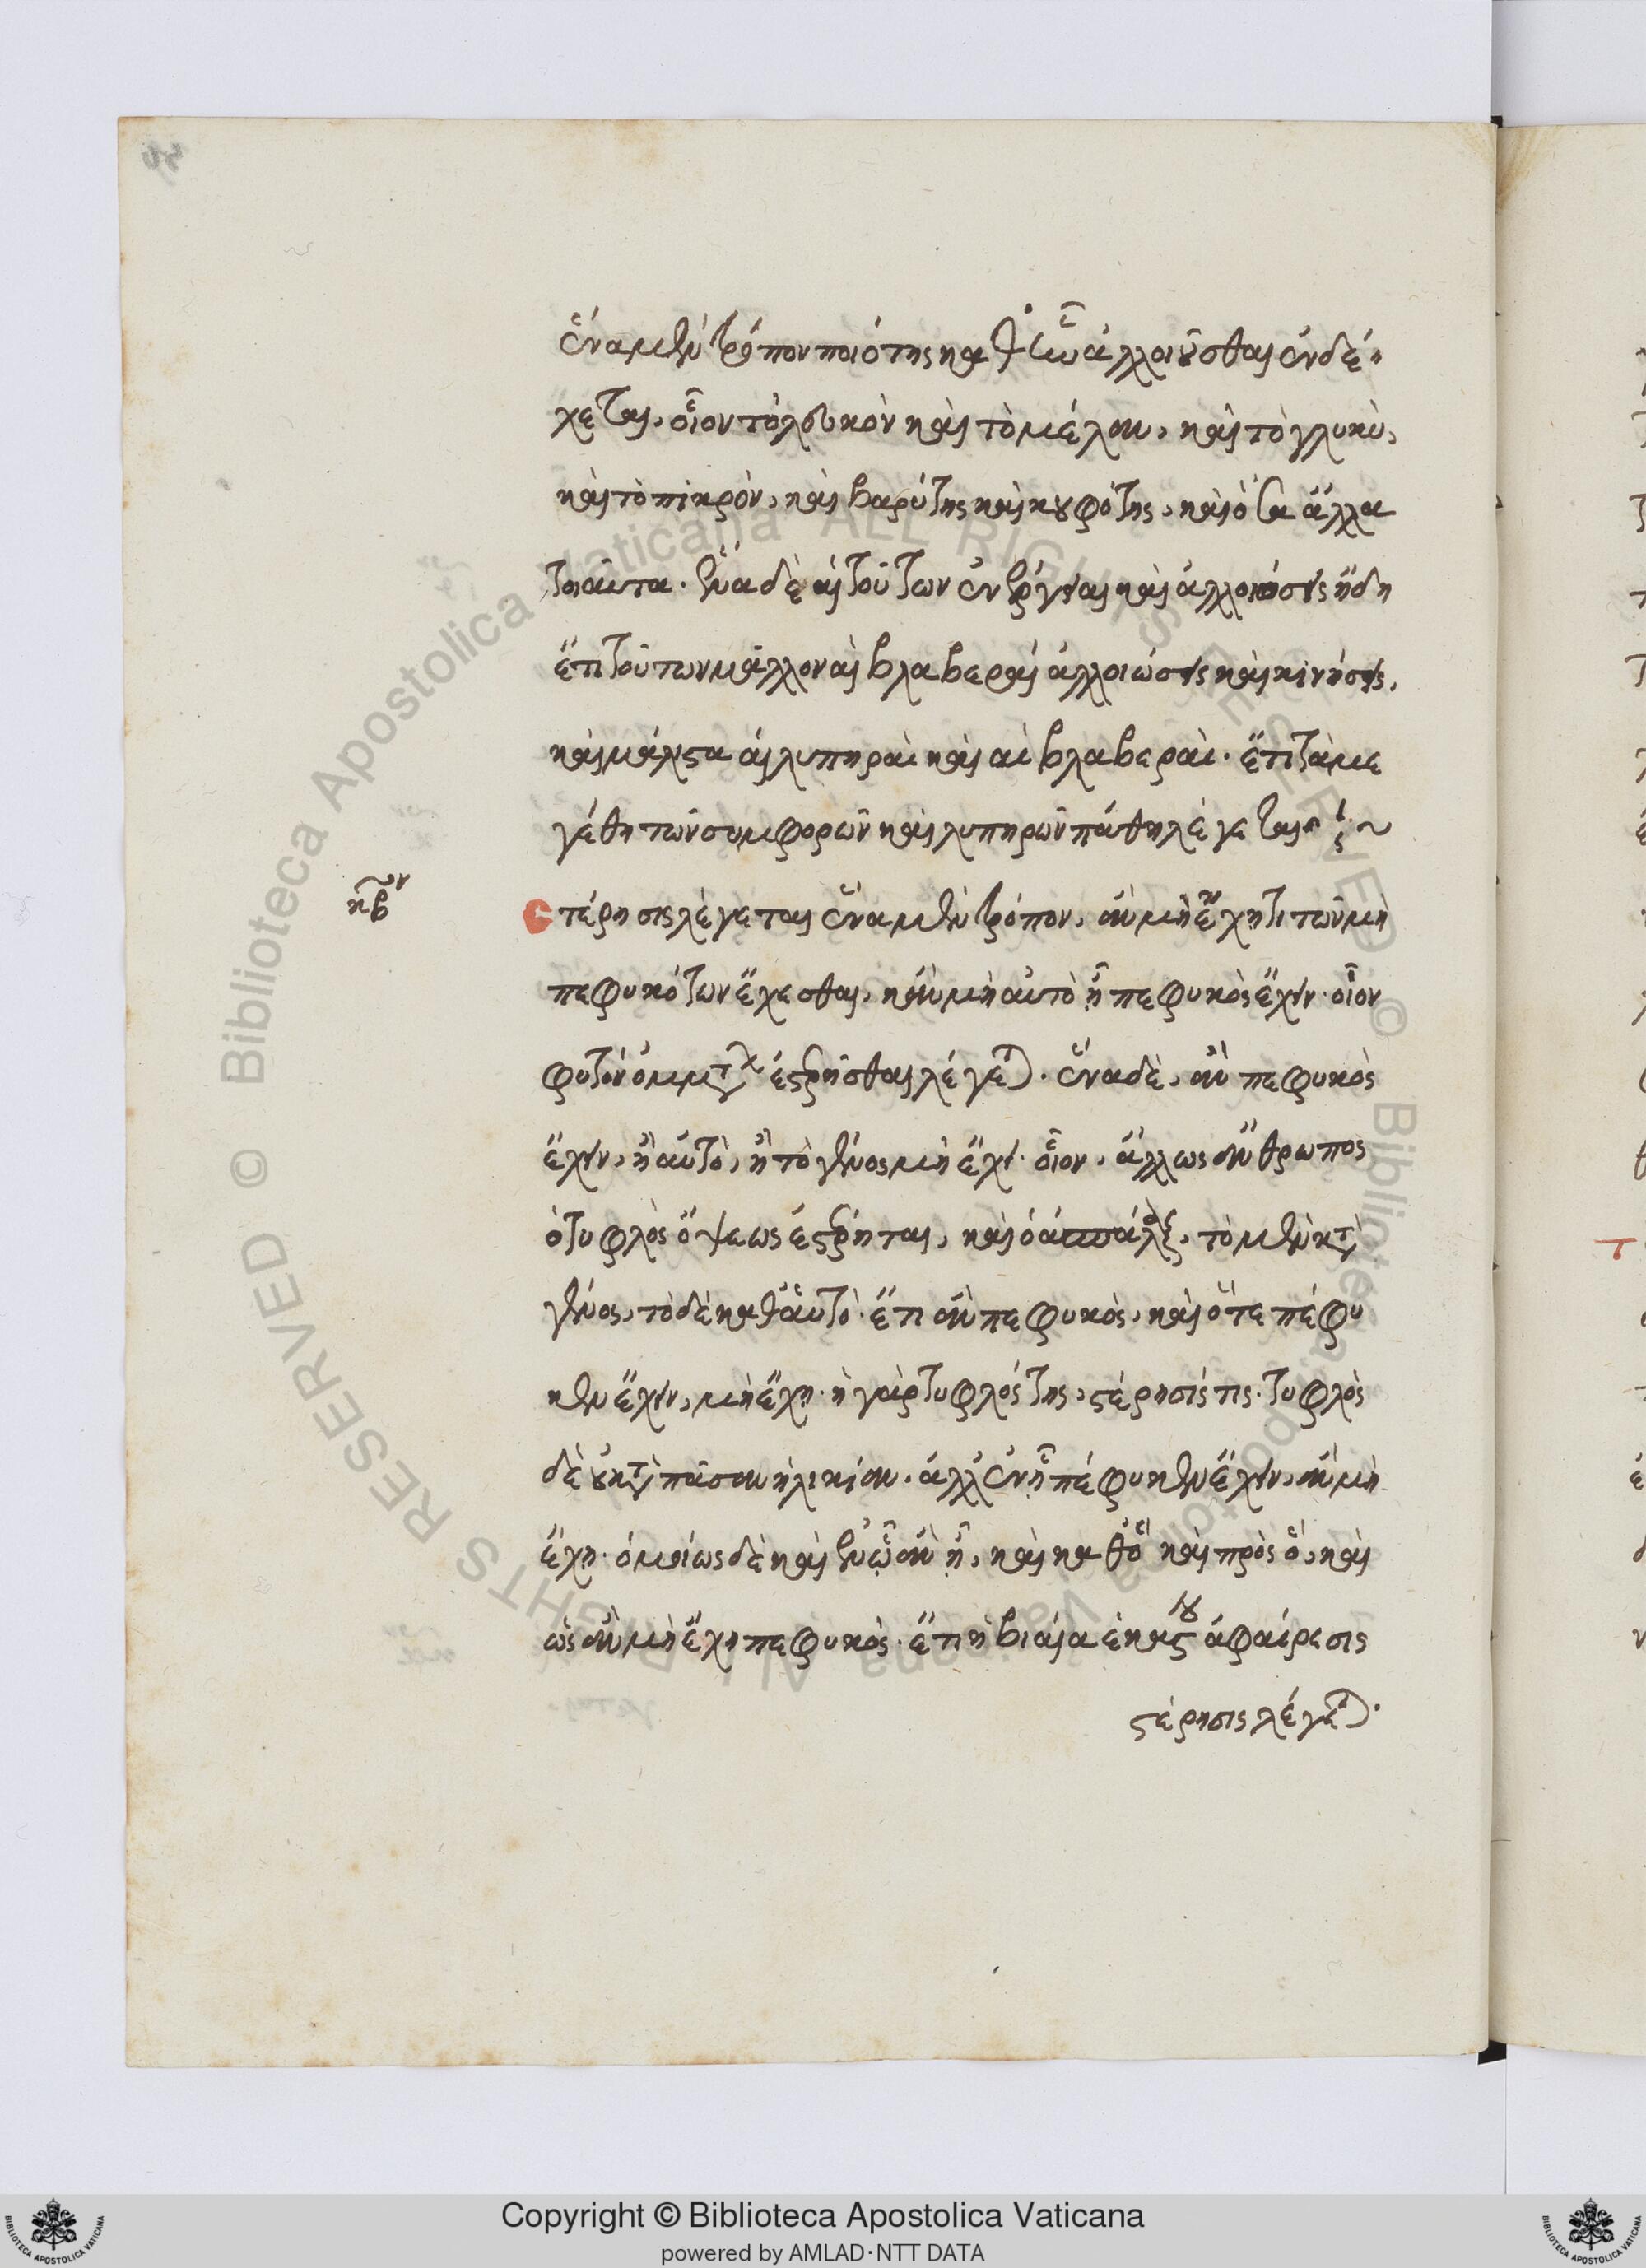 ἕνα μὲν τρόπον ποιότης καθ' ἣν ἀλλοιοῦσθαι ἐνδέ-
χεται, οἷον τὸ λευκὸν καὶ τὸ μέλαν, καὶ τὸ γλυκὺ,
καὶ τὸ πικρόν, καὶ βαρύτης καὶ κουφότης, καὶ ὅσα ἄλλα
τοιαῦτα. ἕνα δὲ αἱ τούτων ἐνέργειαι καὶ ἀλλοιώσεις ἤδη
ἔτι τούτων μᾶλλον αἱ βλαβεραὶ ἀλλοιώσεις καὶ κινήσεις,
καὶ μάλιστα αἱ λυπηραὶ καὶ αἱ βλαβεραὶ. ἔτι τὰ με
γέθη τῶν συμφορῶν καὶ λυπηρῶν πάθη λέγεται
κβον
στέρησις λέγεται ἕνα μὲν τρόπον, ἂν μὴ ἔχῃ τι τῶν μὴ
πεφυκότων ἔχεσθαι, κἂν μὴ αὐτὸ ᾖ πεφυκὸς ἔχειν. οἷον
φυτὸν ὀμμάτων ἐστερῆσθαι λέγεται. ἕνα δὲ, ἂν πεφυκὸς
ἔχειν, ἢ αὐτὸ, ἢ τὸ γένος μὴ ἔχει. οἷον, ἄλλως ἄνθρωπος
ὁ τυφλὸς ὄψεως ἐστέρηται, καὶ ὁ ἀσπάλαξ, τὸ μὲν κατὰ
γένος, τὸ δὲ καθ' αὑτὸ. ἔτι ἂν πεφυκὸς, καὶ ὅτε πέφυ
κεν ἔχειν, μὴ ἔχῃ. ἡ γὰρ τυφλότης, στέρησίς τις. τυφλὸς
δὲ οὐ κατὰ πᾶσαν ἡλικίαν. ἀλλ' ἐν ᾗ πέφυκεν ἔχειν, ἂν μὴ
ἔχῃ. ὁμοίως δὲ καὶ ἐν ᾧ ἂν ᾖ, καὶ καθ' ὃ καὶ πρὸς ὃ, καὶ
ὡς ἂν μὴ ἔχῃ πεφυκὸς. ἔτι ἡ βιαία ἑκάστου ἀφαίρεσις
στέρησις λέγεται.
Copyright © Biblioteca Apostolica Vaticana
powered by AMLAD·NTT DATA